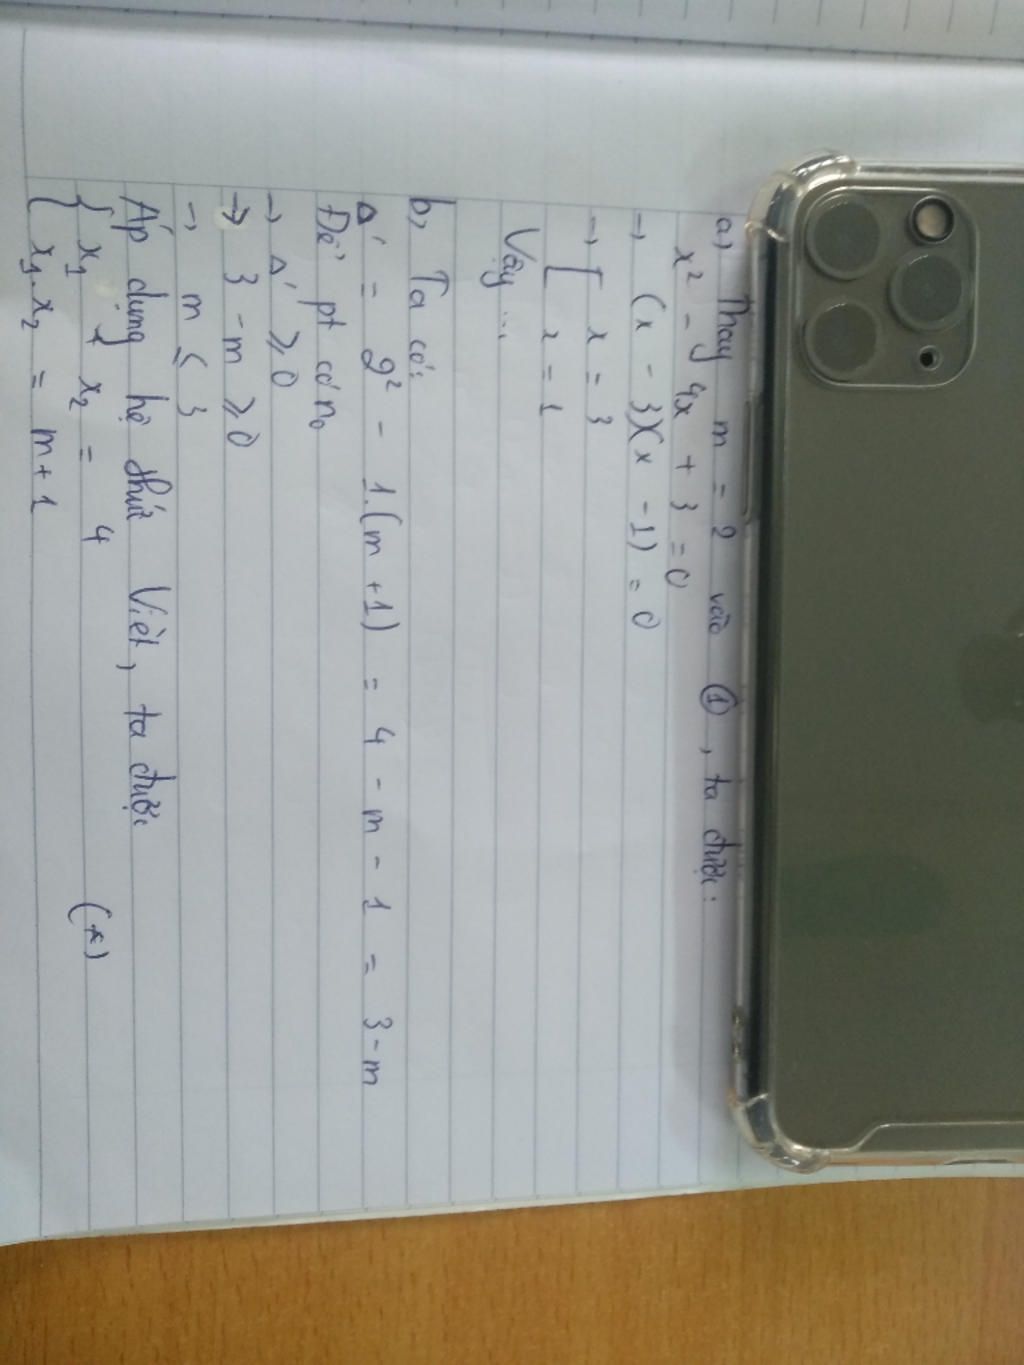 a, Thay m = 2 vào ①, ta được:
x² - 4x + 3 = 0
→ (x - 3)(x - 1) = 0
→ [ x = 3
[ x = 1
Vậy ...
b, Ta có:
Δ' = 2² - 1.(m + 1) = 4 - m - 1 = 3 - m
Để pt có n₀
→ Δ' ≥ 0
→ 3 - m ≥ 0
→ m ≤ 3
Áp dụng hệ thức Viét, ta được
{ x₁ + x₂ = 4 (*)
{ x₁.x₂ = m + 1